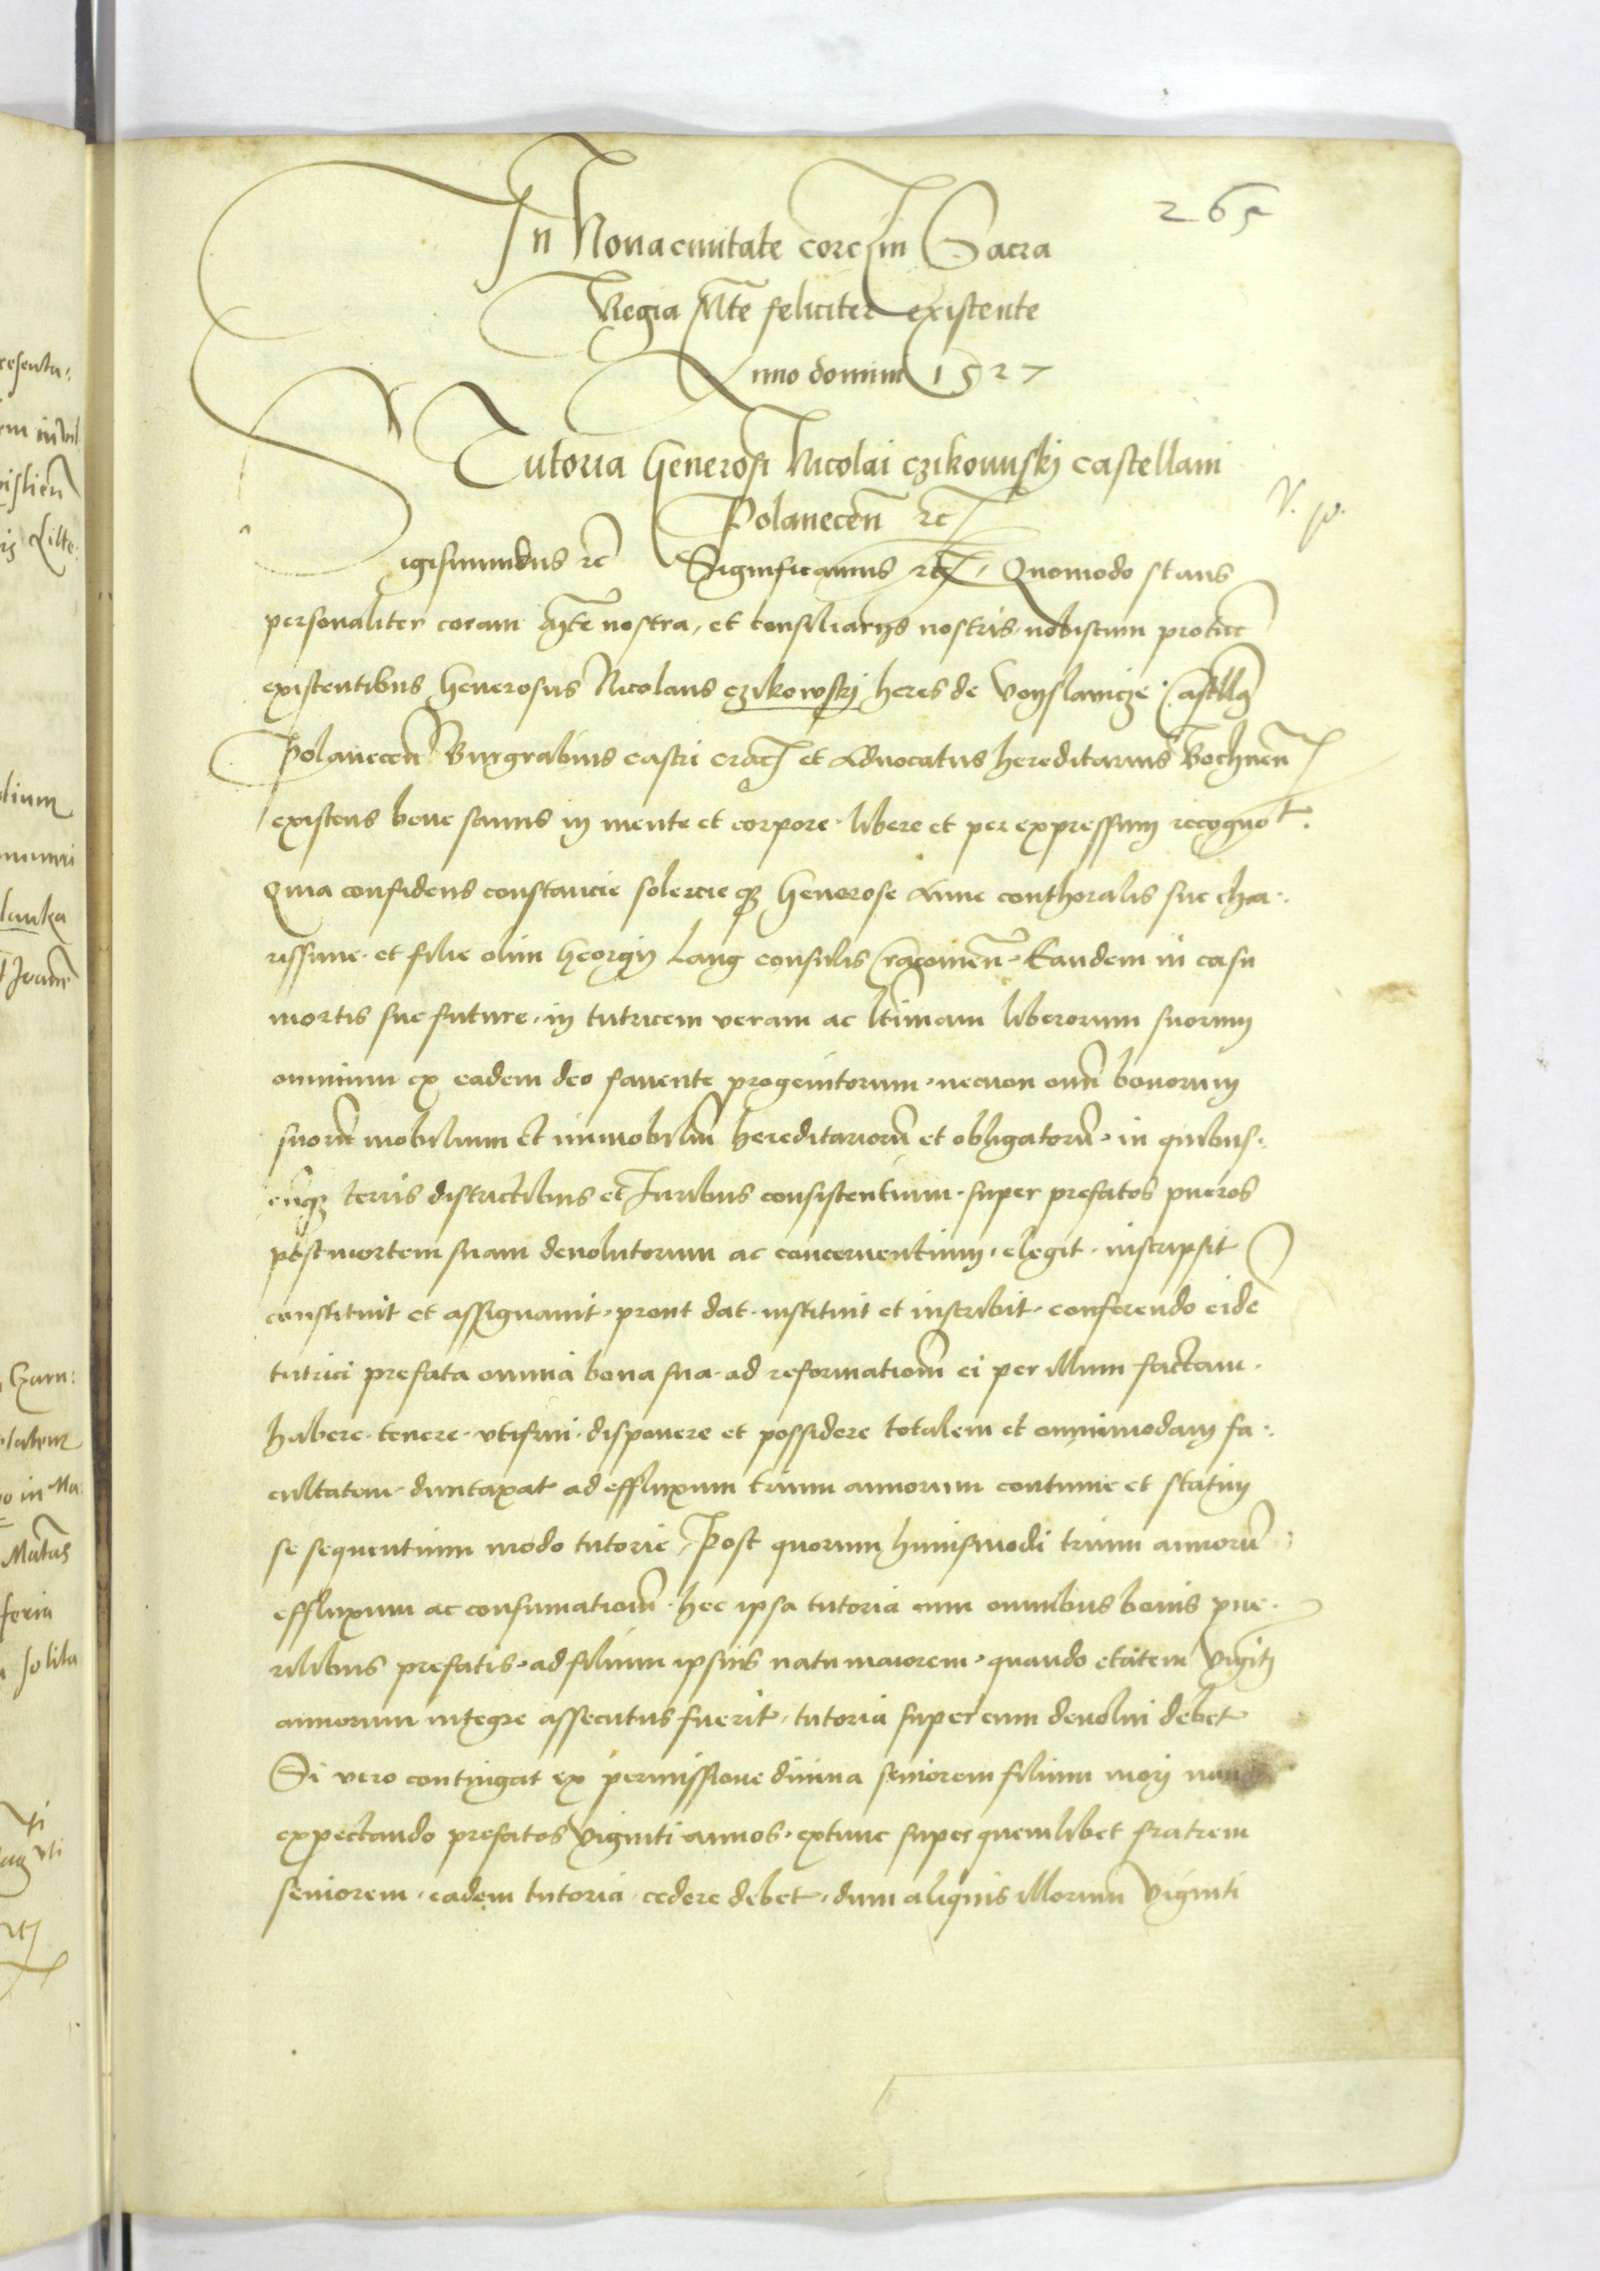 265
In Nova civitate corczin Sacra
Regia Mte feliciter existente
Anno domini 1527
Tutoria Generosi Nicolai czikowskj castellani
Polanecen̄ rc̄
V. p.
Sigismundus rc̄ Significamus rc̄, Quomodo stans
personaliter coram Mte nostra, et consiliarijs nostris nobiscum pro tūc
existentibus Generosus Nicolaus czikowskj heres de Voyslawicze Castllan̄
Polanecen̄ Burgrabius castri crac̄ et Advocatus hereditarius Bochnen̄
existens bene sanus in mente et corpore libere et per expressum recognot.
Quia confidens constancie solercie q3 Generose Anne conthoralis sue cha:
rissime et filie olim Georgij Lang consulis Cracovien̄ Eandem in casu
mortis sue future in tutricem veram ac ltimam liberorum suorum
omnium ex eadem deo favente progenitorum necnon omn̄ bonorum
suorū mobilium et immobiliū hereditariorū et obligatorū in quibus:
cūq3 terris districtibus et Iuribus consistentium super prefatos pueros
post mortem suam devolutorum ac concernentium elegit inscripsit
constituit et assignavit prout dat instituit et inscribit conferendo eidē
tutrici prefata omnia bona sua ad reformationem ei per illum factam
habere tenere utifrui disponere et possidere totalem et omnimodam fa:
cultatem duntaxat ad effluxum trium annorum continue et statim
se sequentium modo tutorie, Post quorum huiusmodi trium annorū
effluxum ac consumationem hec ipsa tutoria cum omnibus bonis pue:
rilibus prefatis ad filium ipsius natu maiorem quando etatem viginti
annorum integre assecutus fuerit, tutoria super eum devolui debet
Si vero contingat ex permissione divina seniorem filium mori non
expectando prefatos viginti annos extunc super quemlibet fratrem
seniorem eadem tutoria cedere debet dum aliquis illorum viginti